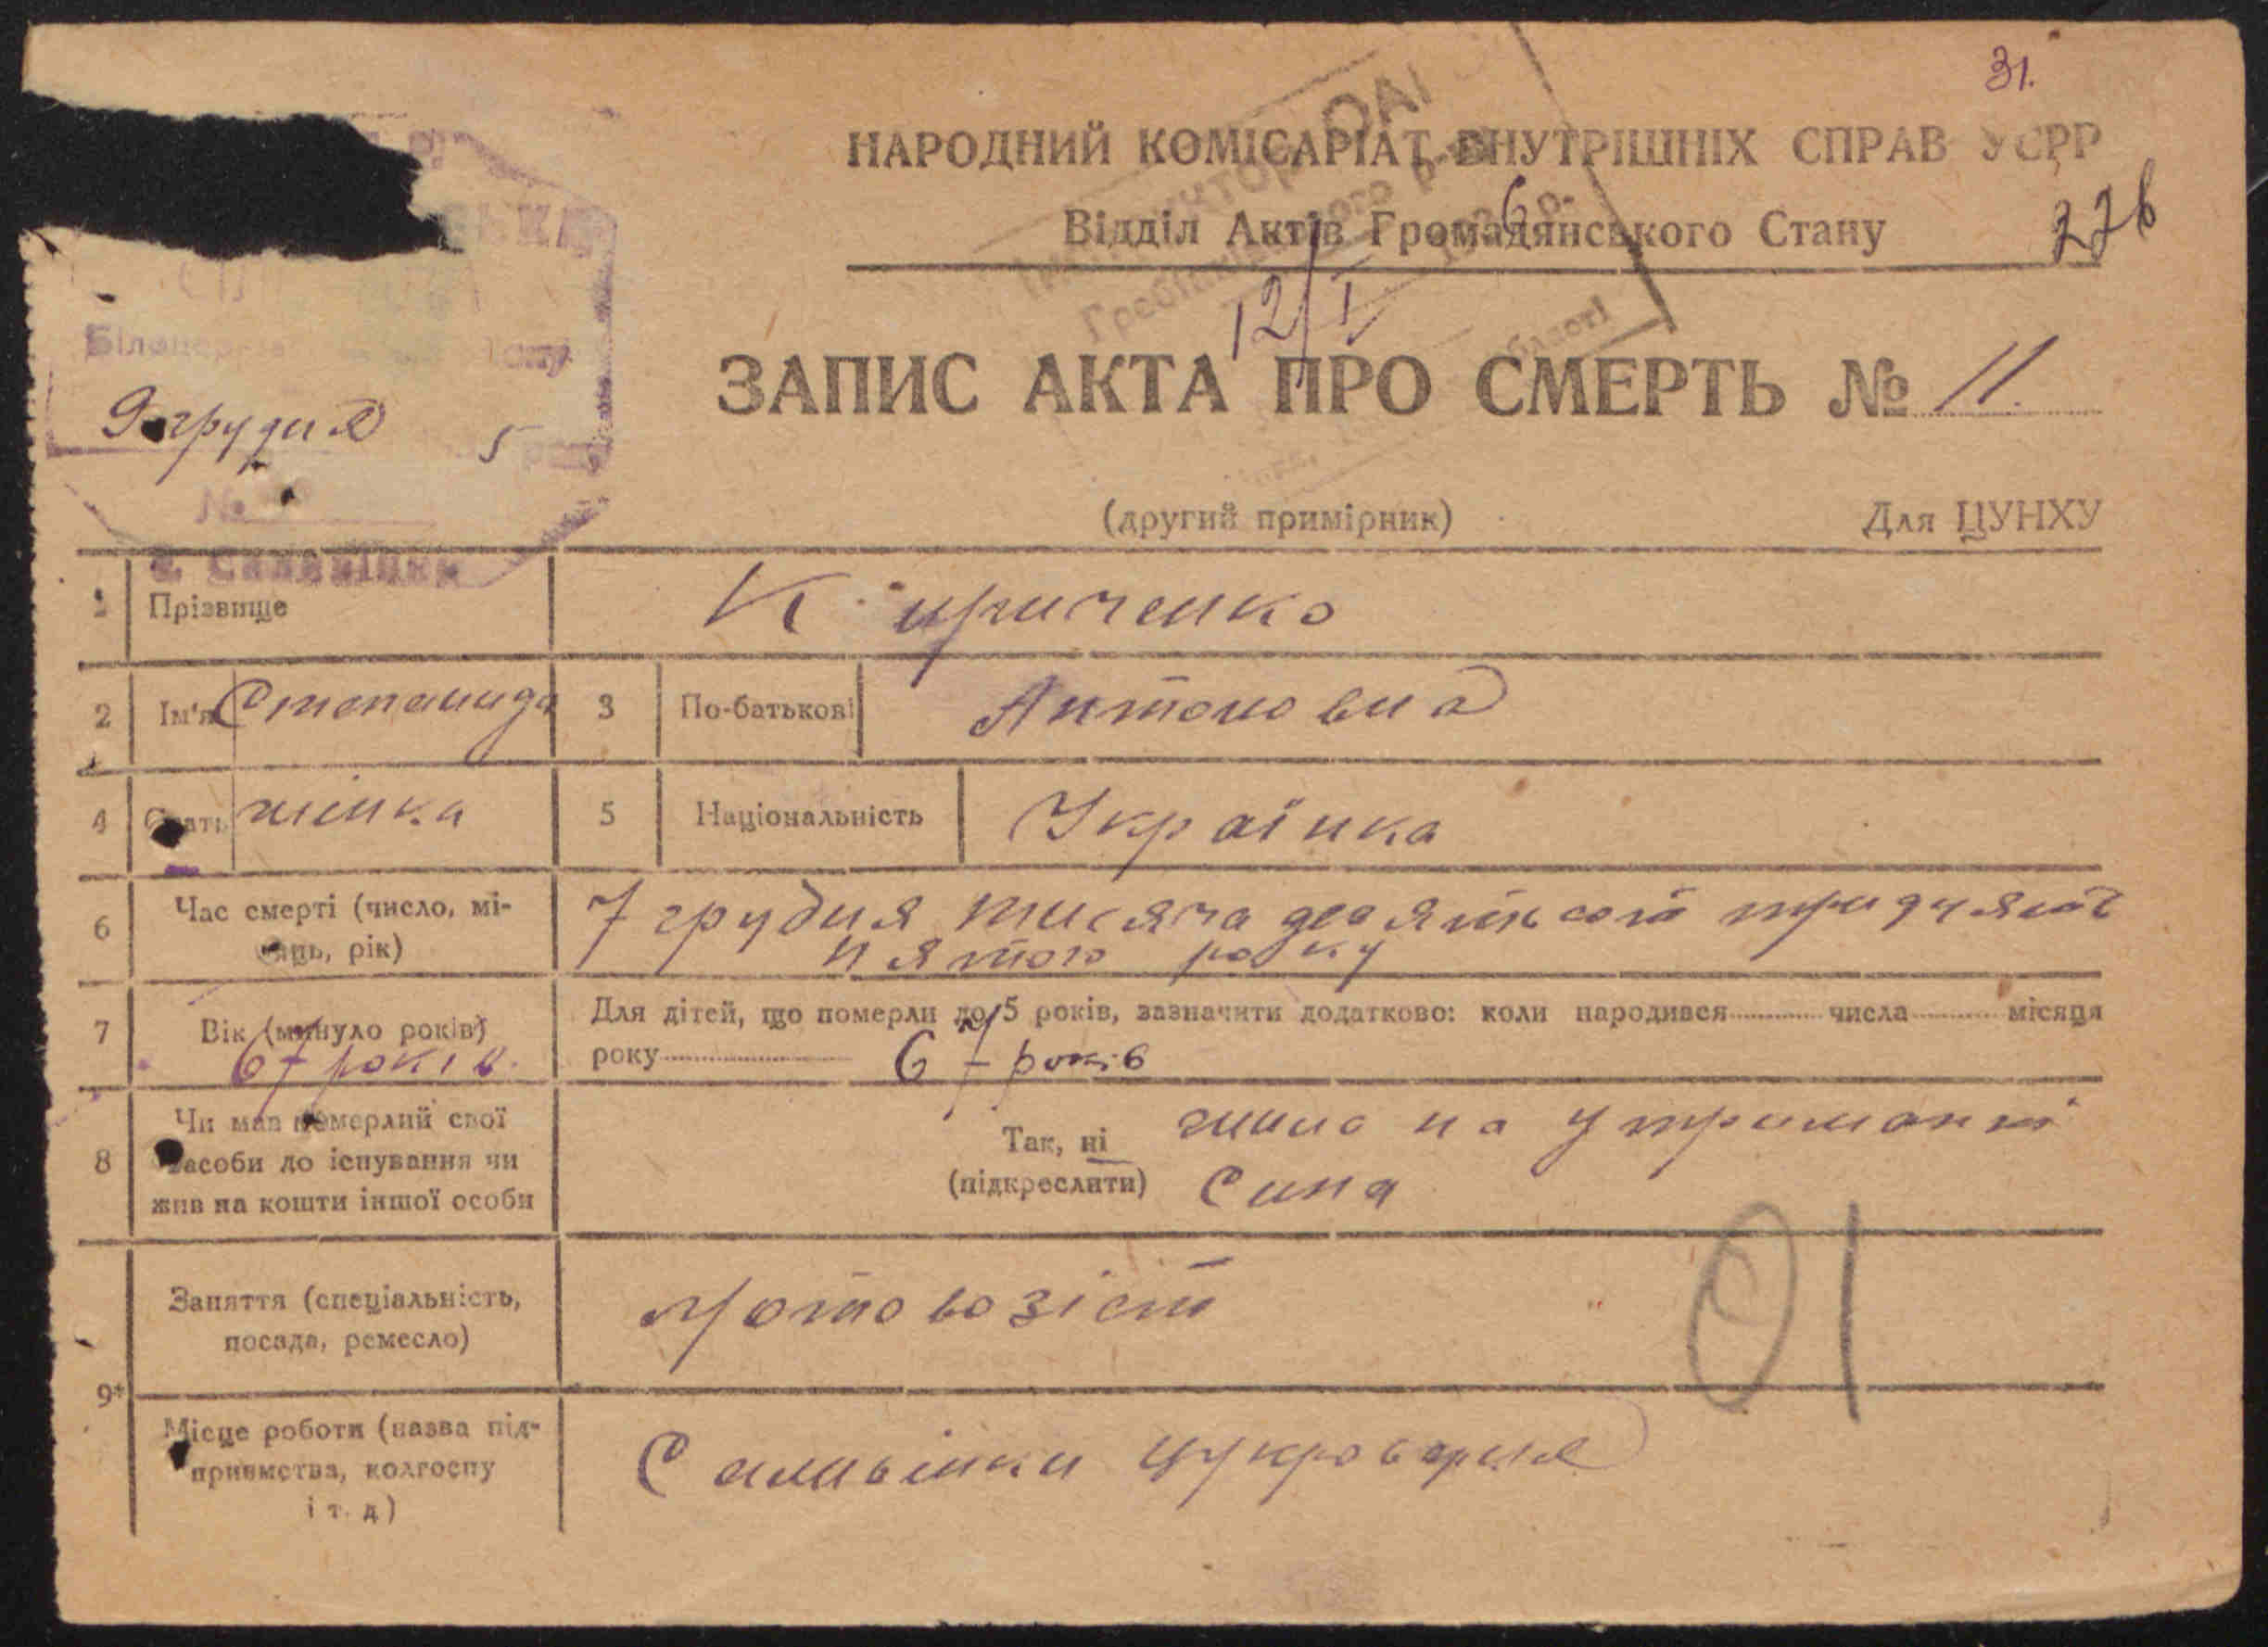 31.
НАРОДНИЙ КОМІСАРІАТ ВНУТРІШНІХ СПРАВ УСРР
Відділ Актів Громадянського Стану
226
12/I 6
ЗАПИС АКТА ПРО СМЕРТЬ № 11.
9 грудня 5
№
(другий примірник) Для ЦУНХУ
с. Саливінки
1 Прізвище Кириченко
2 Ім'я Степанида 3 По-батькові Антоновна
4 Стать жінка 5 Національність Українка
6 Час смерті (число, мі-
сяць, рік)
7 грудня тисяча девятьсот тридцять
пятого року
7 Вік (минуло років)
67 років.
Для дітей, що померли до 5 років, зазначити додатково: коли народився числа місяця
року 67 років
8 Чи мав померлий свої
засоби до існування чи
жив на кошти іншої особи
Так, ні
(підкреслити)
жила на утриманні
сина
9* Заняття (спеціальність,
посада, ремесло)
мотовозіст
01
Місце роботи (назва під-
приємства, колгоспу
і т. д)
Саливінки цукроварня